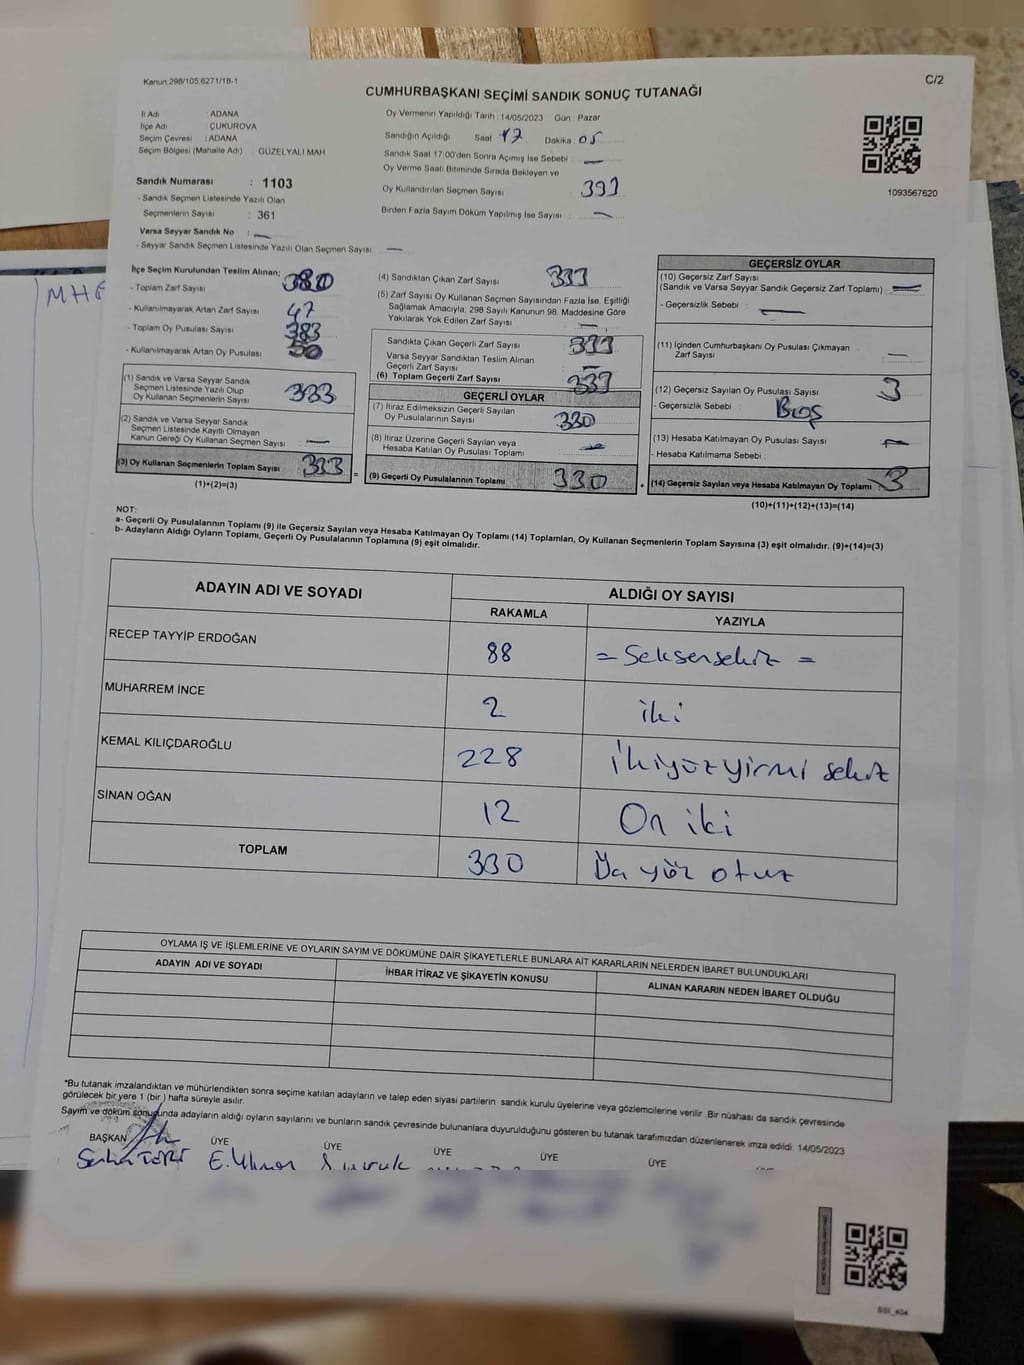 Kanun:298/105;6271/18-1
C/2
CUMHURBAŞKANI SEÇİMİ SANDIK SONUÇ TUTANAĞI
İl Adı ADANA
İlçe Adı : ÇUKUROVA
Seçim Çevresi : ADANA
Seçim Bölgesi (Mahalle Adı) GÜZELYALI MAH
Sandık Numarası : 1103
- Sandık Seçmen Listesinde Yazılı Olan
Seçmenlerin Sayısı : 361
Varsa Seyyar Sandık No : —
- Seyyar Sandık Seçmen Listesinde Yazılı Olan Seçmen Sayısı: —
Oy Vermenin Yapıldığı Tarih : 14/05/2023 Gün : Pazar
Sandığın Açıldığı Saat 17 Dakika 05
Sandık Saat 17:00'den Sonra Açımış İse Sebebi : —
Oy Verme Saati Bitiminde Sırada Bekleyen ve
Oy Kullandırılan Seçmen Sayısı
Birden Fazla Sayım Döküm Yapılmış İse Sayısı : —
1093567620
İlçe Seçim Kurulundan Teslim Alınan;
- Toplam Zarf Sayısı 380
- Kullanılmayarak Artan Zarf Sayısı 47
- Toplam Oy Pusulası Sayısı 383
- Kullanılmayarak Artan Oy Pusulası 50
(1) Sandık ve Varsa Seyyar Sandık
Seçmen Listesinde Yazılı Olup
Oy Kullanan Seçmenlerin Sayısı 333
(2) Sandık ve Varsa Seyyar Sandık
Seçmen Listesinde Kayıtlı Olmayan
Kanun Gereği Oy Kullanan Seçmen Sayısı —
(3) Oy Kullanan Seçmenlerin Toplam Sayısı 333
(1)+(2)=(3)
(4) Sandıktan Çıkan Zarf Sayısı 333
(5) Zarf Sayısı Oy Kullanan Seçmen Sayısından Fazla İse, Eşitliği
Sağlamak Amacıyla; 298 Sayılı Kanunun 98. Maddesine Göre
Yakılarak Yok Edilen Zarf Sayısı —
Sandıkta Çıkan Geçerli Zarf Sayısı 333
Varsa Seyyar Sandıktan Teslim Alınan
Geçerli Zarf Sayısı —
(6) Toplam Geçerli Zarf Sayısı 333
GEÇERLİ OYLAR
(7) İtiraz Edilmeksizin Geçerli Sayılan
Oy Pusulalarının Sayısı 330
(8) İtiraz Üzerine Geçerli Sayılan veya
Hesaba Katılan Oy Pusulası Toplamı —
(9) Geçerli Oy Pusulalarının Toplamı 330
GEÇERSİZ OYLAR
(10) Geçersiz Zarf Sayısı
(Sandık ve Varsa Seyyar Sandık Geçersiz Zarf Toplamı) : —
- Geçersizlik Sebebi : —
(11) İçinden Cumhurbaşkanı Oy Pusulası Çıkmayan
Zarf Sayısı —
(12) Geçersiz Sayılan Oy Pusulası Sayısı 3
- Geçersizlik Sebebi : Boş
(13) Hesaba Katılmayan Oy Pusulası Sayısı —
- Hesaba Katılmama Sebebi :
(14) Geçersiz Sayılan veya Hesaba Katılmayan Oy Toplamı 3
(10)+(11)+(12)+(13)=(14)
NOT:
a- Geçerli Oy Pusulalarının Toplamı (9) ile Geçersiz Sayılan veya Hesaba Katılmayan Oy Toplamı (14) Toplamları, Oy Kullanan Seçmenlerin Toplam Sayısına (3) eşit olmalıdır. (9)+(14)=(3)
b- Adayların Aldığı Oyların Toplamı, Geçerli Oy Pusulalarının Toplamına (9) eşit olmalıdır.
ADAYIN ADI VE SOYADI ALDIĞI OY SAYISI
RAKAMLA YAZIYLA
RECEP TAYYİP ERDOĞAN 88 = Seksensekiz =
MUHARREM İNCE 2 iki
KEMAL KILIÇDAROĞLU 228 İkiyüzyirmi sekiz
SİNAN OĞAN 12 On iki
TOPLAM 330 yüz otuz
OYLAMA İŞ VE İŞLEMLERİNE VE OYLARIN SAYIM VE DÖKÜMÜNE DAİR ŞİKAYETLERLE BUNLARA AİT KARARLARIN NELERDEN İBARET BULUNDUKLARI
ADAYIN ADI VE SOYADI İHBAR İTİRAZ VE ŞİKAYETİN KONUSU ALINAN KARARIN NEDEN İBARET OLDUĞU
*Bu tutanak imzalandıktan ve mühürlendikten sonra seçime katılan adayların ve talep eden siyasi partilerin sandık kurulu üyelerine veya gözlemcilerine verilir. Bir nüshası da sandık çevresinde
görülecek bir yere 1 (bir ) hafta süreyle asılır.
Sayım ve döküm sonucunda adayların aldığı oyların sayılarını ve bunların sandık çevresinde bulunanlara duyurulduğunu gösteren bu tutanak tarafımızdan düzenlenerek imza edildi. 14/05/2023
BAŞKAN ÜYE ÜYE ÜYE ÜYE ÜYE